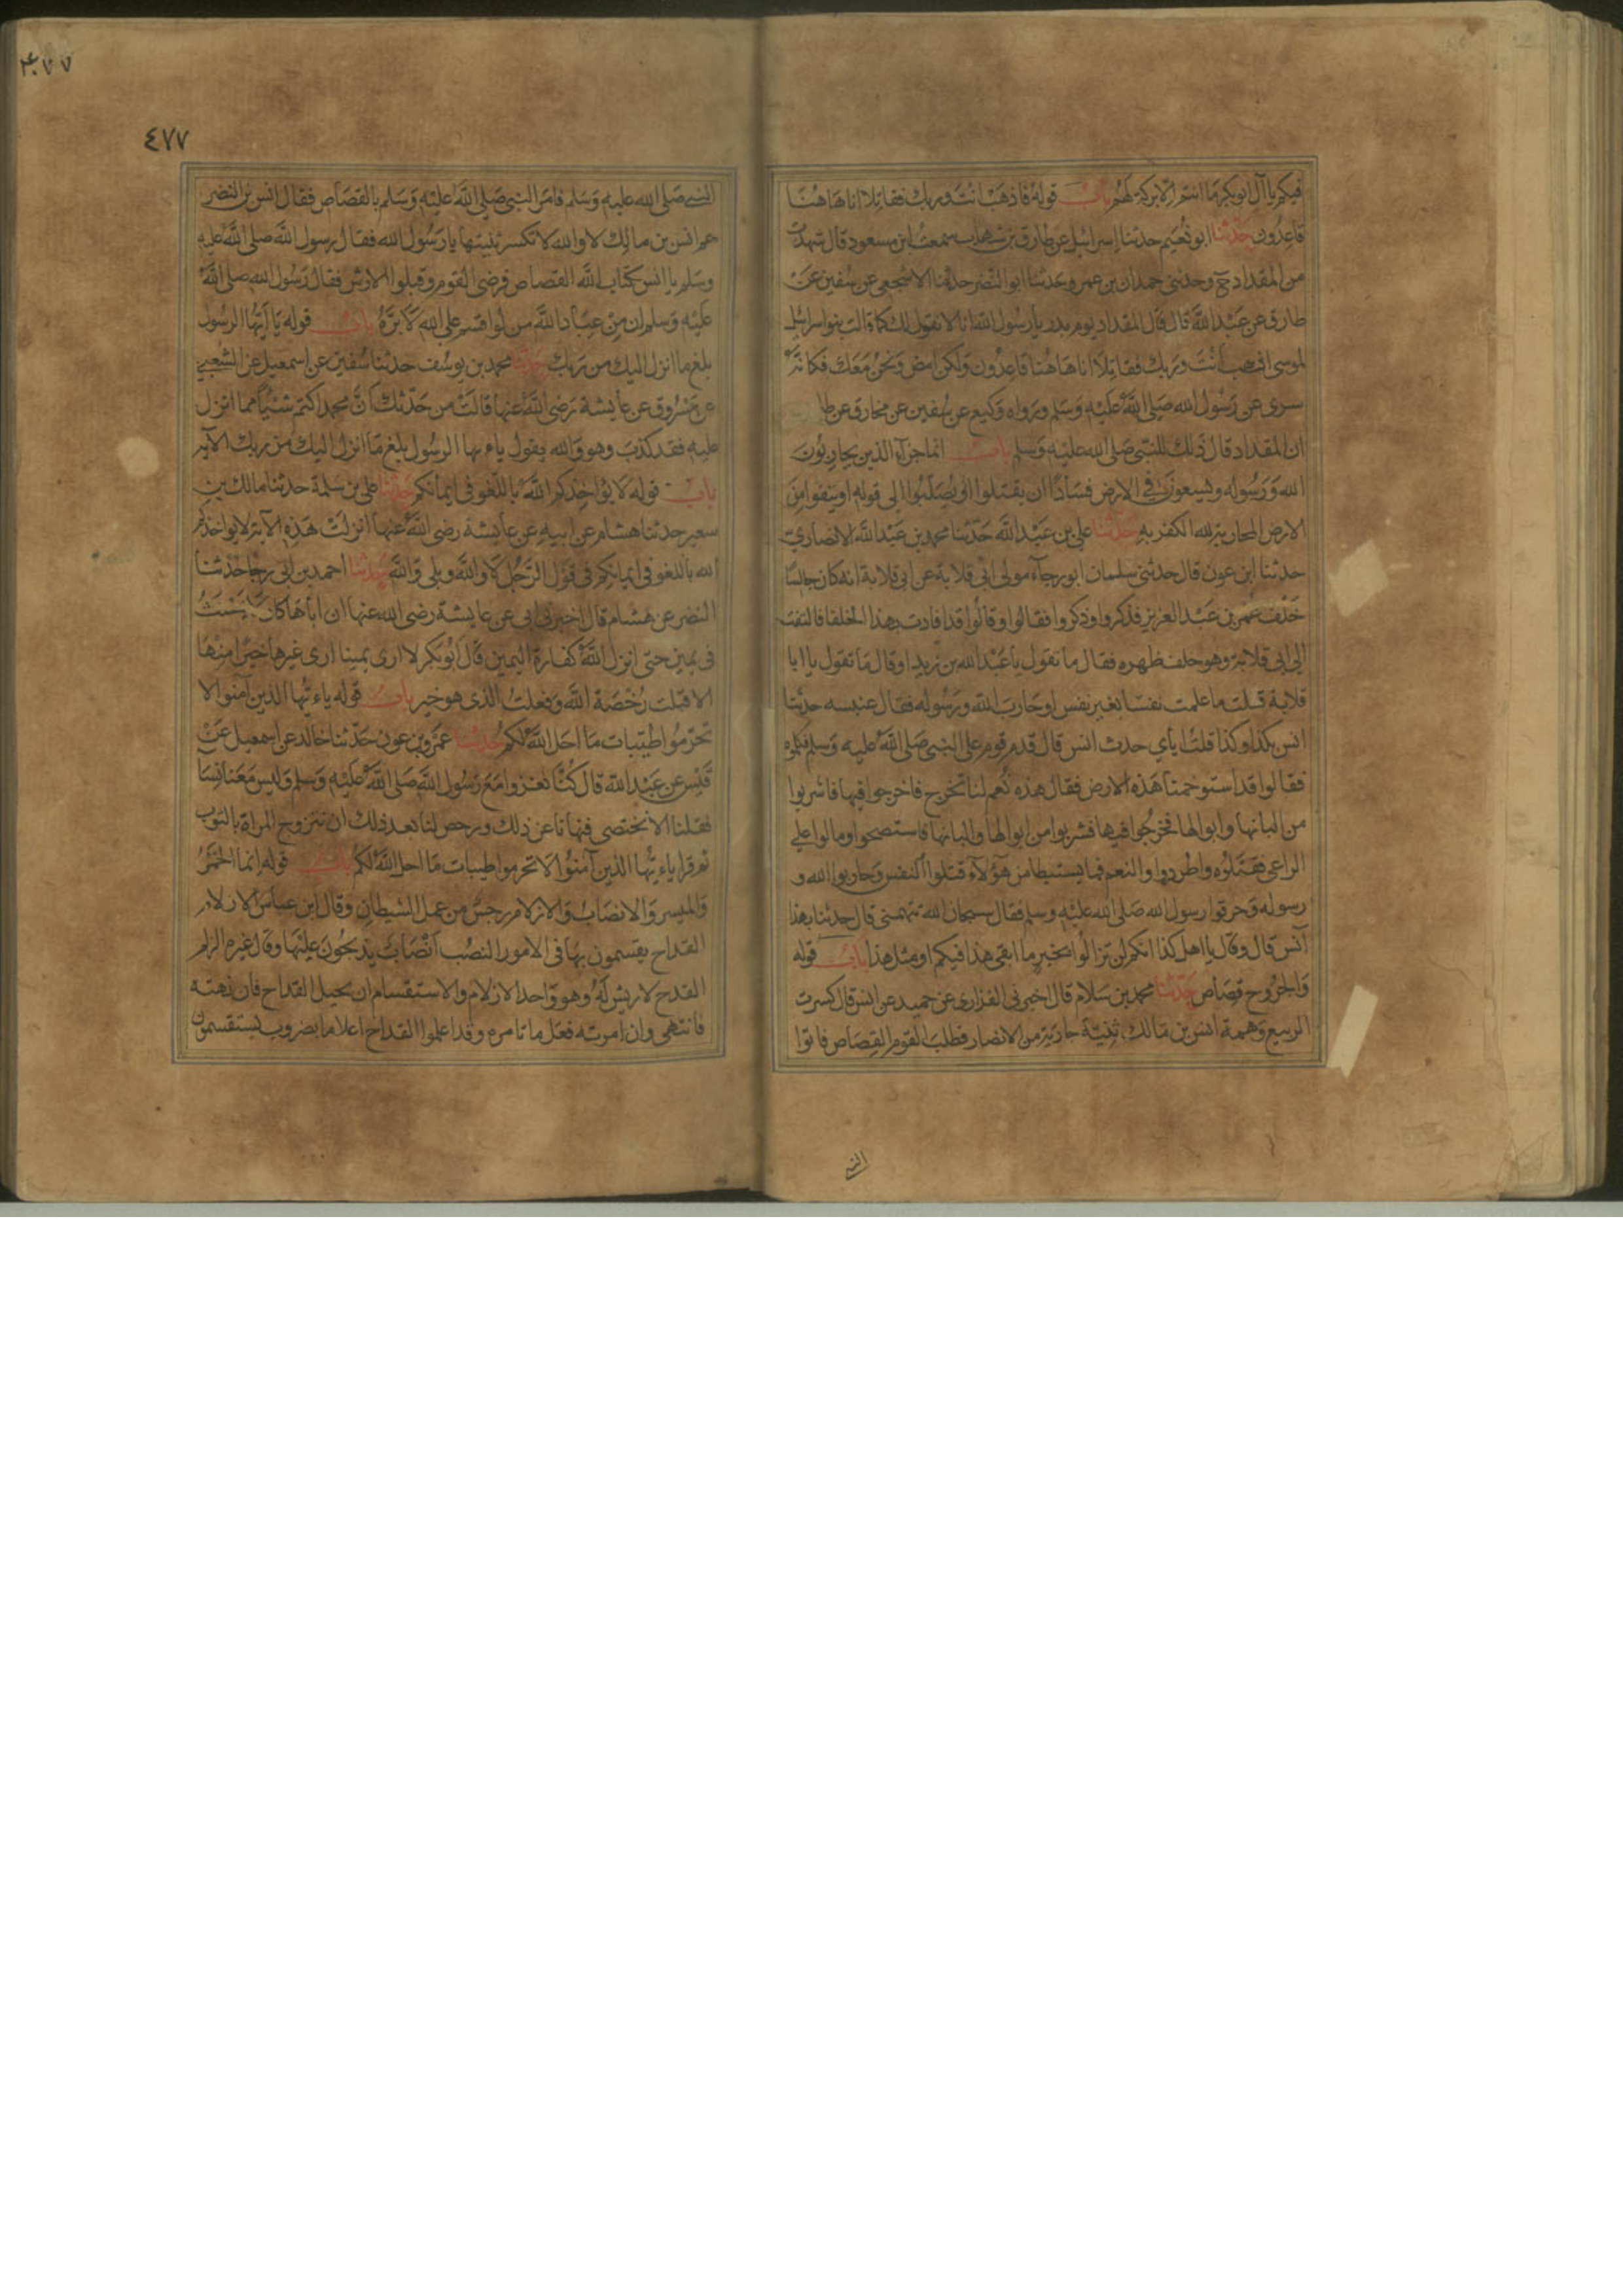 فيكم يا آل ابو بكر ما انتم الا بركة لهم باب قوله فاذهب انت وربك فقاتلا انا هاهنا
قاعدون حدثنا ابو نعيم حدثنا اسرائيل عن طارق بن شهاب سمعت ابن مسعود قال شهدت
من المقداد ح وحدثني حمدان بن عمر وحدثنا ابو النضر حدثنا الاشجعي عن سفين عن
طارق عن عبد الله قال قال المقداد يوم بدر يا رسول الله انا لا نقول لك كما قالت بنوا اسرائيل
لموسى اذهب انت وربك فقاتلا انا هاهنا قاعدون ولكن امض ونحن معك فكانه
سرى عن رسول الله صلى الله عليه وسلم ورواه وكيع عن سفين عن مخارق عن طا
ان المقداد قال ذلك للنبي صلى الله عليه وسلم باب انما جزآء الذين يحاربون
الله ورسوله ويسعون في الارض فسادا ان يقتلوا او يصلبوا الى قوله او ينفوا من
الارض المحاربة لله الكفر به حدثنا علي بن عبد الله حدثنا محمد بن عبد الله الانصاري
حدثنا ابن عون قال حدثني سلمان ابو رجآء مولى ابي قلابة عن ابي قلابة انه كان جالسا
خلف عمر بن عبد العزيز فذكروا وذكروا فقالوا وقالوا قد اقادت بهذا الخلفا فالتفت
الى ابي قلابة وهو خلف ظهره فقال ما تقول يا عبد الله بن زيد او قال ما تقول يا ابا
قلابة قلت ما علمت نفسا بغير نفس او حارب الله ورسوله فقال عنبسه حدثنا
انس بكذا وكذا قلت اياي حدث انس قال قدم قوم على النبي صلى الله عليه وسلم فكلموه
فقالوا قد استوخمنا هذه الارض فقال هذه نعم لنا تخرج فاخرجوا فيها فاشربوا
من البانها وابوالها فخرجوا فيها فشربوا من ابوالها والبانها فاستصحوا ومالوا على
الراعي فقتلوه واطردوا والنعم فما يستبطا من هؤلآء قتلوا النفس وحاربوا الله و
رسوله وخوفوا رسول الله صلى الله عليه وسلم فقال سبحان الله تتهمني قال حدثنا بهذا
انس قال وقال يا اهل كذا انكم لن تزالوا بخير ما ابقي هذا فيكم او مثل هذا باب قوله
والجروح قصاص حدثنا محمد بن سلام قال اخبرني الفزاري عن حميد عن انس قال كسرت
الربيع وهي عمة انس بن مالك ثنية جارية من الانصار فطلب القوم القصاص فاتوا
النبي
٤٧٧
٤٧٧
النبي صلى الله عليه وسلم فامر النبي صلى الله عليه وسلم بالقصاص فقال انس بن النضر
عم انس بن مالك لا والله لا تكسر ثنيتها يا رسول الله فقال رسول الله صلى الله عليه
وسلم يا انس كتاب الله القصاص فرضى القوم وقبلوا الارش فقال رسول الله صلى الله
عليه وسلم ان من عباد الله من لو اقسم على الله لابره باب قوله يا ايها الرسول
بلغ ما انزل اليك من ربك حدثنا محمد بن يوسف حدثنا سفين عن اسمعيل عن الشعبي
عن مسروق عن عايشة رضى الله عنها قالت من حدثك ان محمدا كتم شيئا مما انزل
عليه فقد كذب وهو والله يقول يا ءيها الرسول بلغ ما انزل اليك من ربك الآية
باب قوله لا يؤاخذكم الله باللغو في ايمانكم حدثنا علي بن سلمة حدثنا مالك بن
سعير حدثنا هشام عن ابيه عن عايشة رضى الله عنها انزلت هذه الآية لا يواخذكم
الله باللغو في ايمانكم في قول الرجل لا والله وبلى والله حدثنا احمد بن ابي رجا حدثنا
النضر عن هشام قال اخبرني ابي عن عايشة رضى الله عنها ان اباها كان لا يحنث
في يمين حتى انزل الله كفارة اليمين قال ابو بكر لا ارى يمينا ارى غيرها خيرا منها
الا قبلت رخصة الله وفعلت الذي هو خير باب قوله يا ءيها الذين آمنوا لا
تحرموا طيبات ما احل الله لكم حدثنا عمرو بن عون حدثنا خالد عن اسمعيل عن
قيس عن عبد الله قال كنا نغزوا مع رسول الله صلى الله عليه وسلم وليس معنا نسا
فقلنا الا نختصي فنهانا عن ذلك ورخص لنا بعد ذلك ان نتزوج المراة بالثوب
ثم قرا يا ءيها الذين آمنوا لا تحرموا طيبات ما احل الله لكم باب قوله انما الخمر
والميسر والانصاب والازلام رجس من عمل الشيطان وقال ابن عباس الازلام
القداح يقتسمون بها في الامور النصب انصاب يذبحون عليها وقال غيره الزلم
القدح لا ريش له وهو واحد الازلام والاستقسام ان يحيل القداح فان نهته
فانتهى وان امرته فعل ما تامره وقد اعلموا القداح اعلاما بضروب يستقسمون